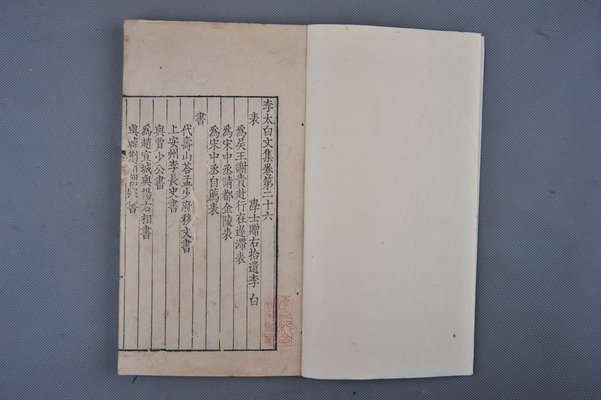 李太白文集卷第二十六
學士贈右拾遺李 白
表
為吳王謝責赴行在遲滯表
為宋中丞請都金陵表
為宋中丞自薦表
書
代壽山荅孟少府移文書
上安州李長史書
與賈少公書
為趙宣城與楊右相書
與韓荊州書